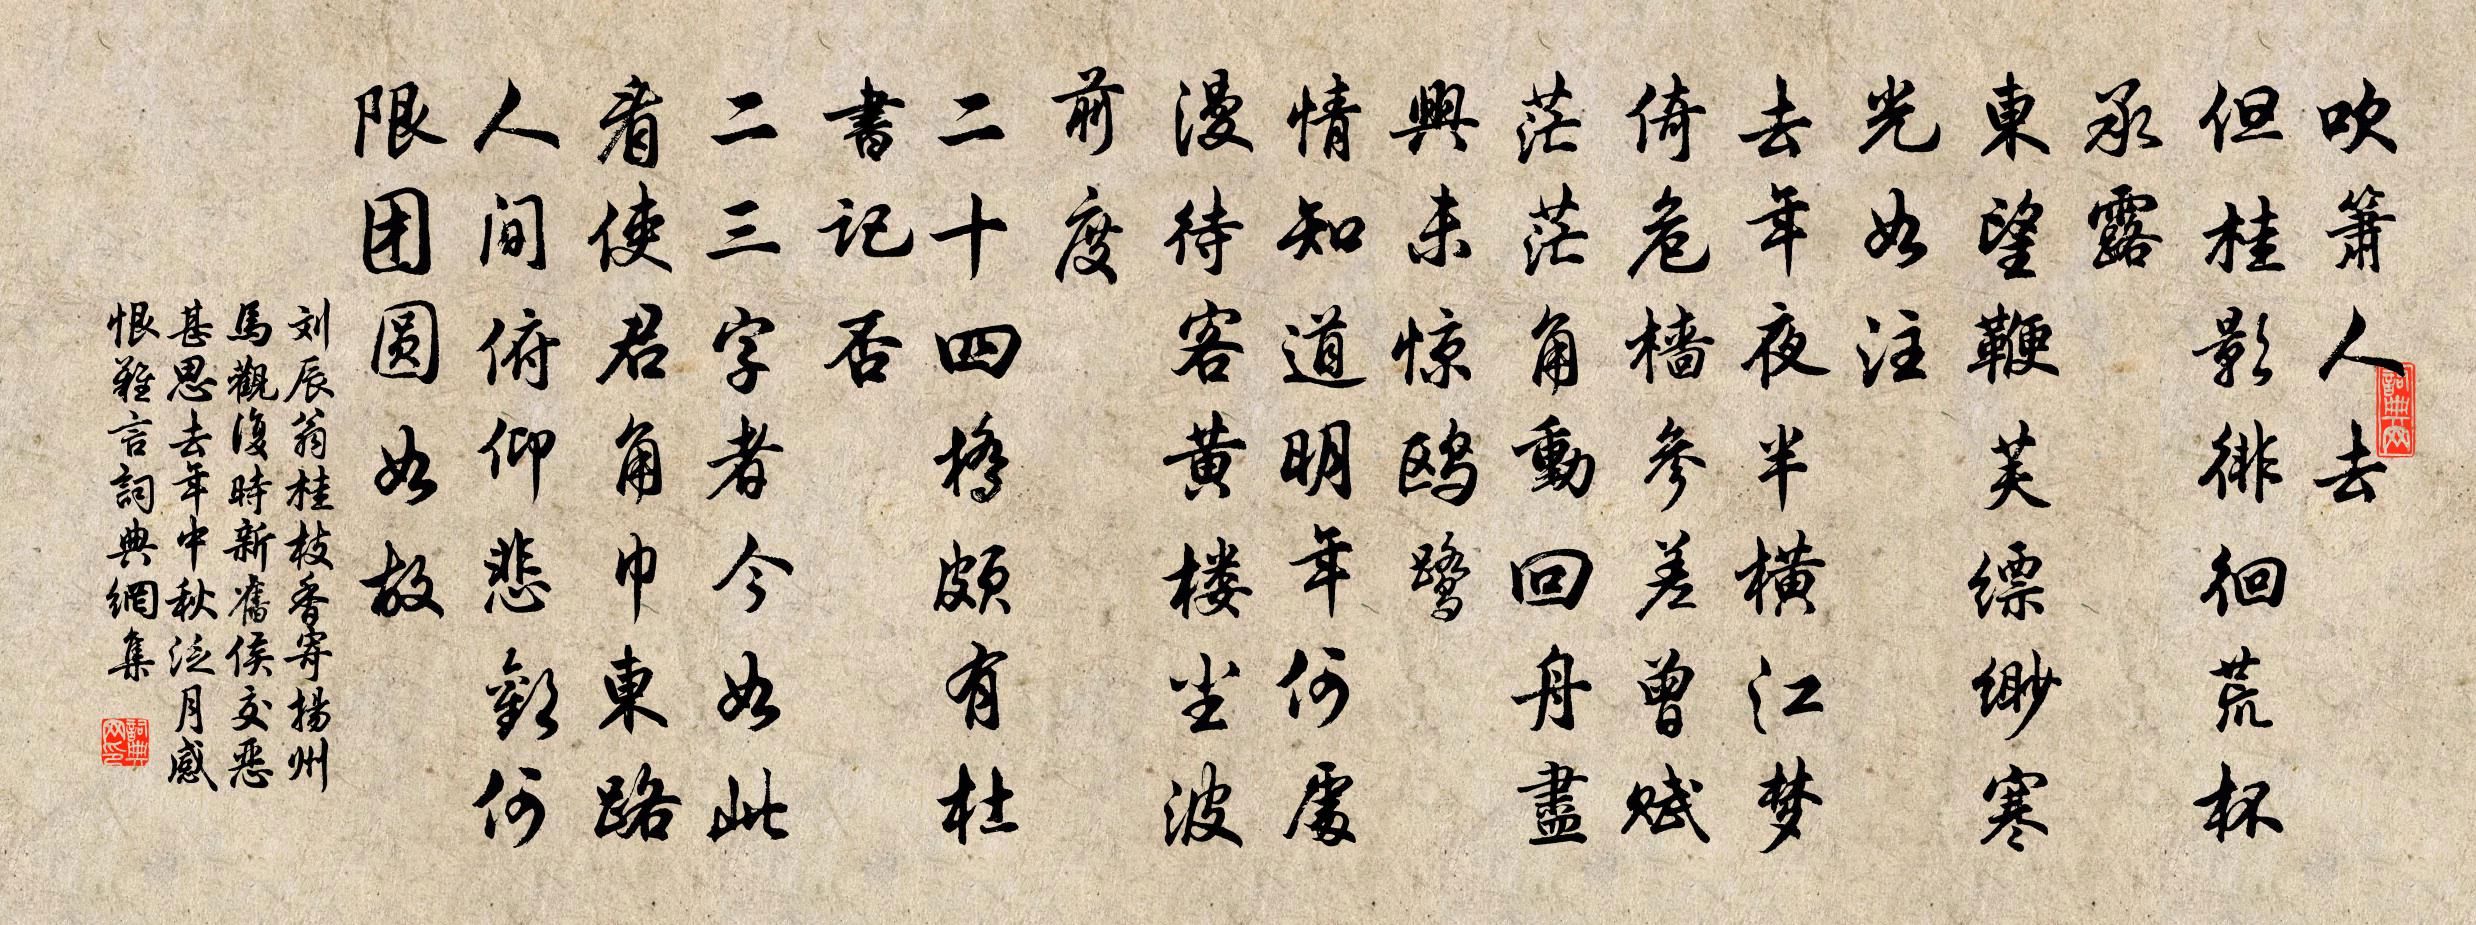 吹箫人去
但桂影徘徊荒杯
承露
東望鞭芙缥缈寒
光如注
去年夜半横江梦
倚危樯参差曾赋
茫茫角動回舟盡
興未惊鸥鹭
情知道明年何處
漫待客黄楼尘波
前度
二十四橋颇有杜
書记否
二三字者今如此
看使君角巾東路
人间俯仰悲歡何
限团圆如故
刘辰翁桂枝香寄揚州
馬觀復時新舊侯交惡
甚思去年中秋泛月感
恨難言詞典網集
詞典网
詞典网印